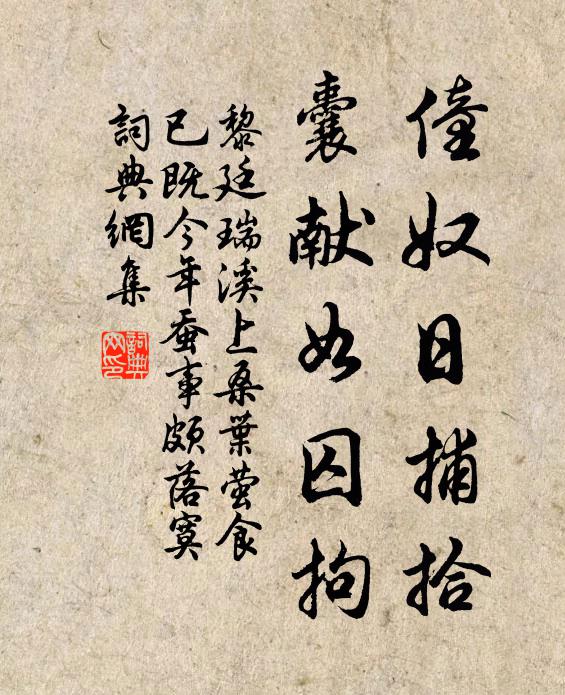 僮奴日捕拾
囊献如囚拘
黎廷瑞溪上桑葉蛍食
已既今年蚕事頗落寞
詞典網集
詞典网印